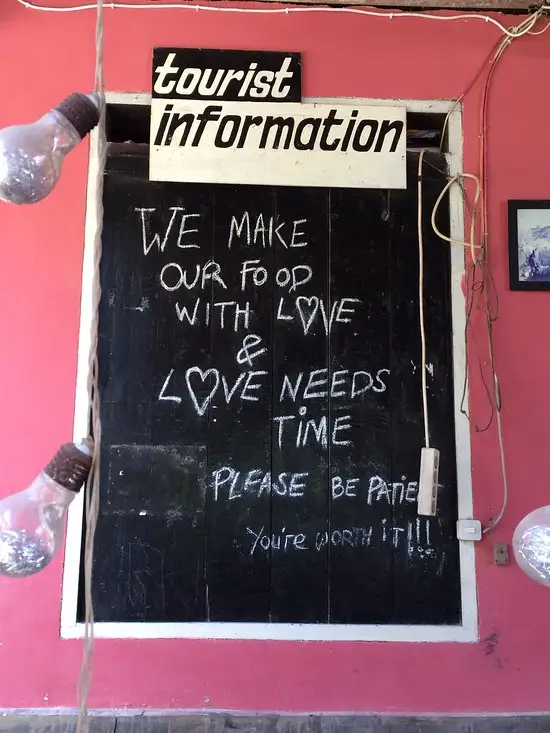 tourist
information
WE MAKE
OUR FOOD
WITH LOVE
&
LOVE NEEDS
TIME
PLEASE BE PATIE
You're WORTH iT!!!